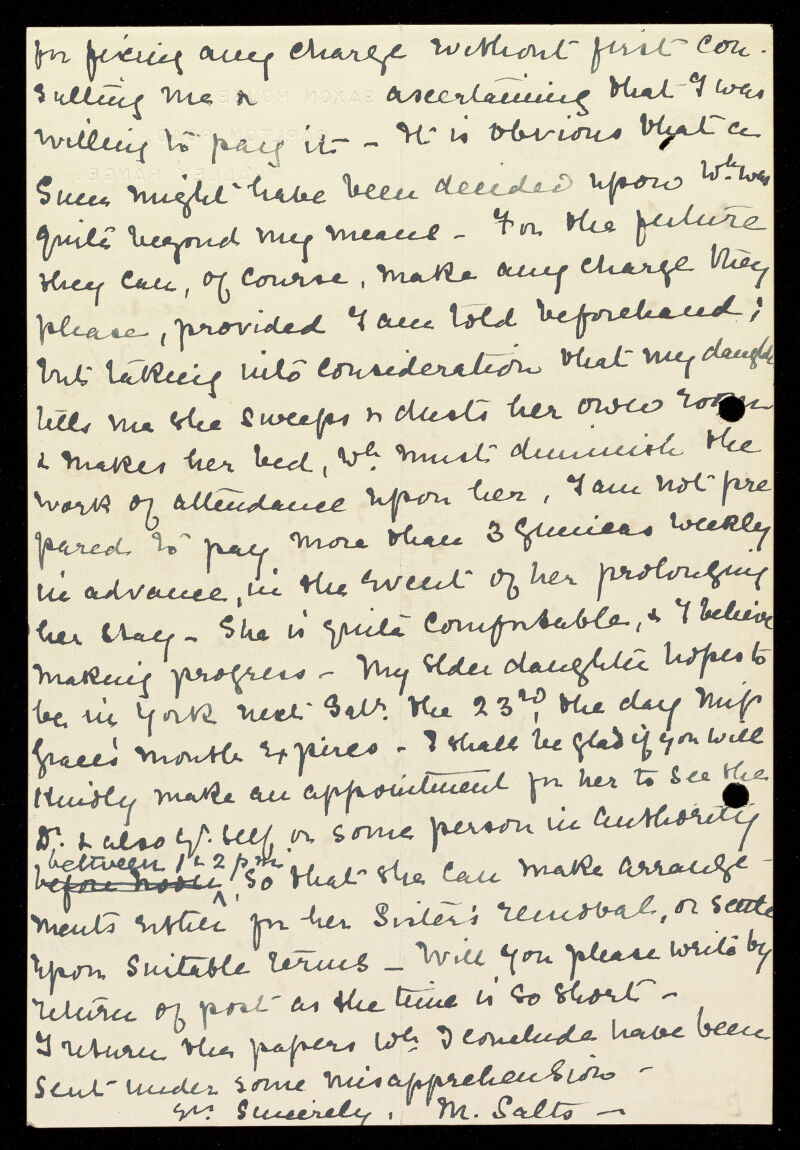 for fixing any charge without first con-
sulting me & ascertaining that I was
willing to pay it – It is obvious that a
Sum might have been decided upon wh. was
quite beyond my means – For the future
they can, of course, make any charge they
please, provided I am told beforehand;
but taking into consideration that my daughter
tells me she sweeps & dusts her own room
& makes her bed, wh. must diminish the
work of attendance upon her, I am not pre
pared to pay more than 3 guineas weekly
in advance, in the event of her prolonging
her stay – She is quite comfortable, & I believe
making progress – My elder daughter hopes to
be in York next Satr. the 23rd, the day Miss
Grace's month expires – I shall be glad if you will
kindly make an appointment for her to see the
Dr. & also yr. self, or some person in authority
between 1 & 2 p.m.
before noon, so that she can make arrange-
ments either for her Sister's removal, or settle
upon suitable terms – Will you please write by
return of post as the time is so short –
I return the papers wh. I conclude have been
sent under some misapprehension –
yrs. Sincerely, M. Salts –
SAXON HOUSE
RANGE.